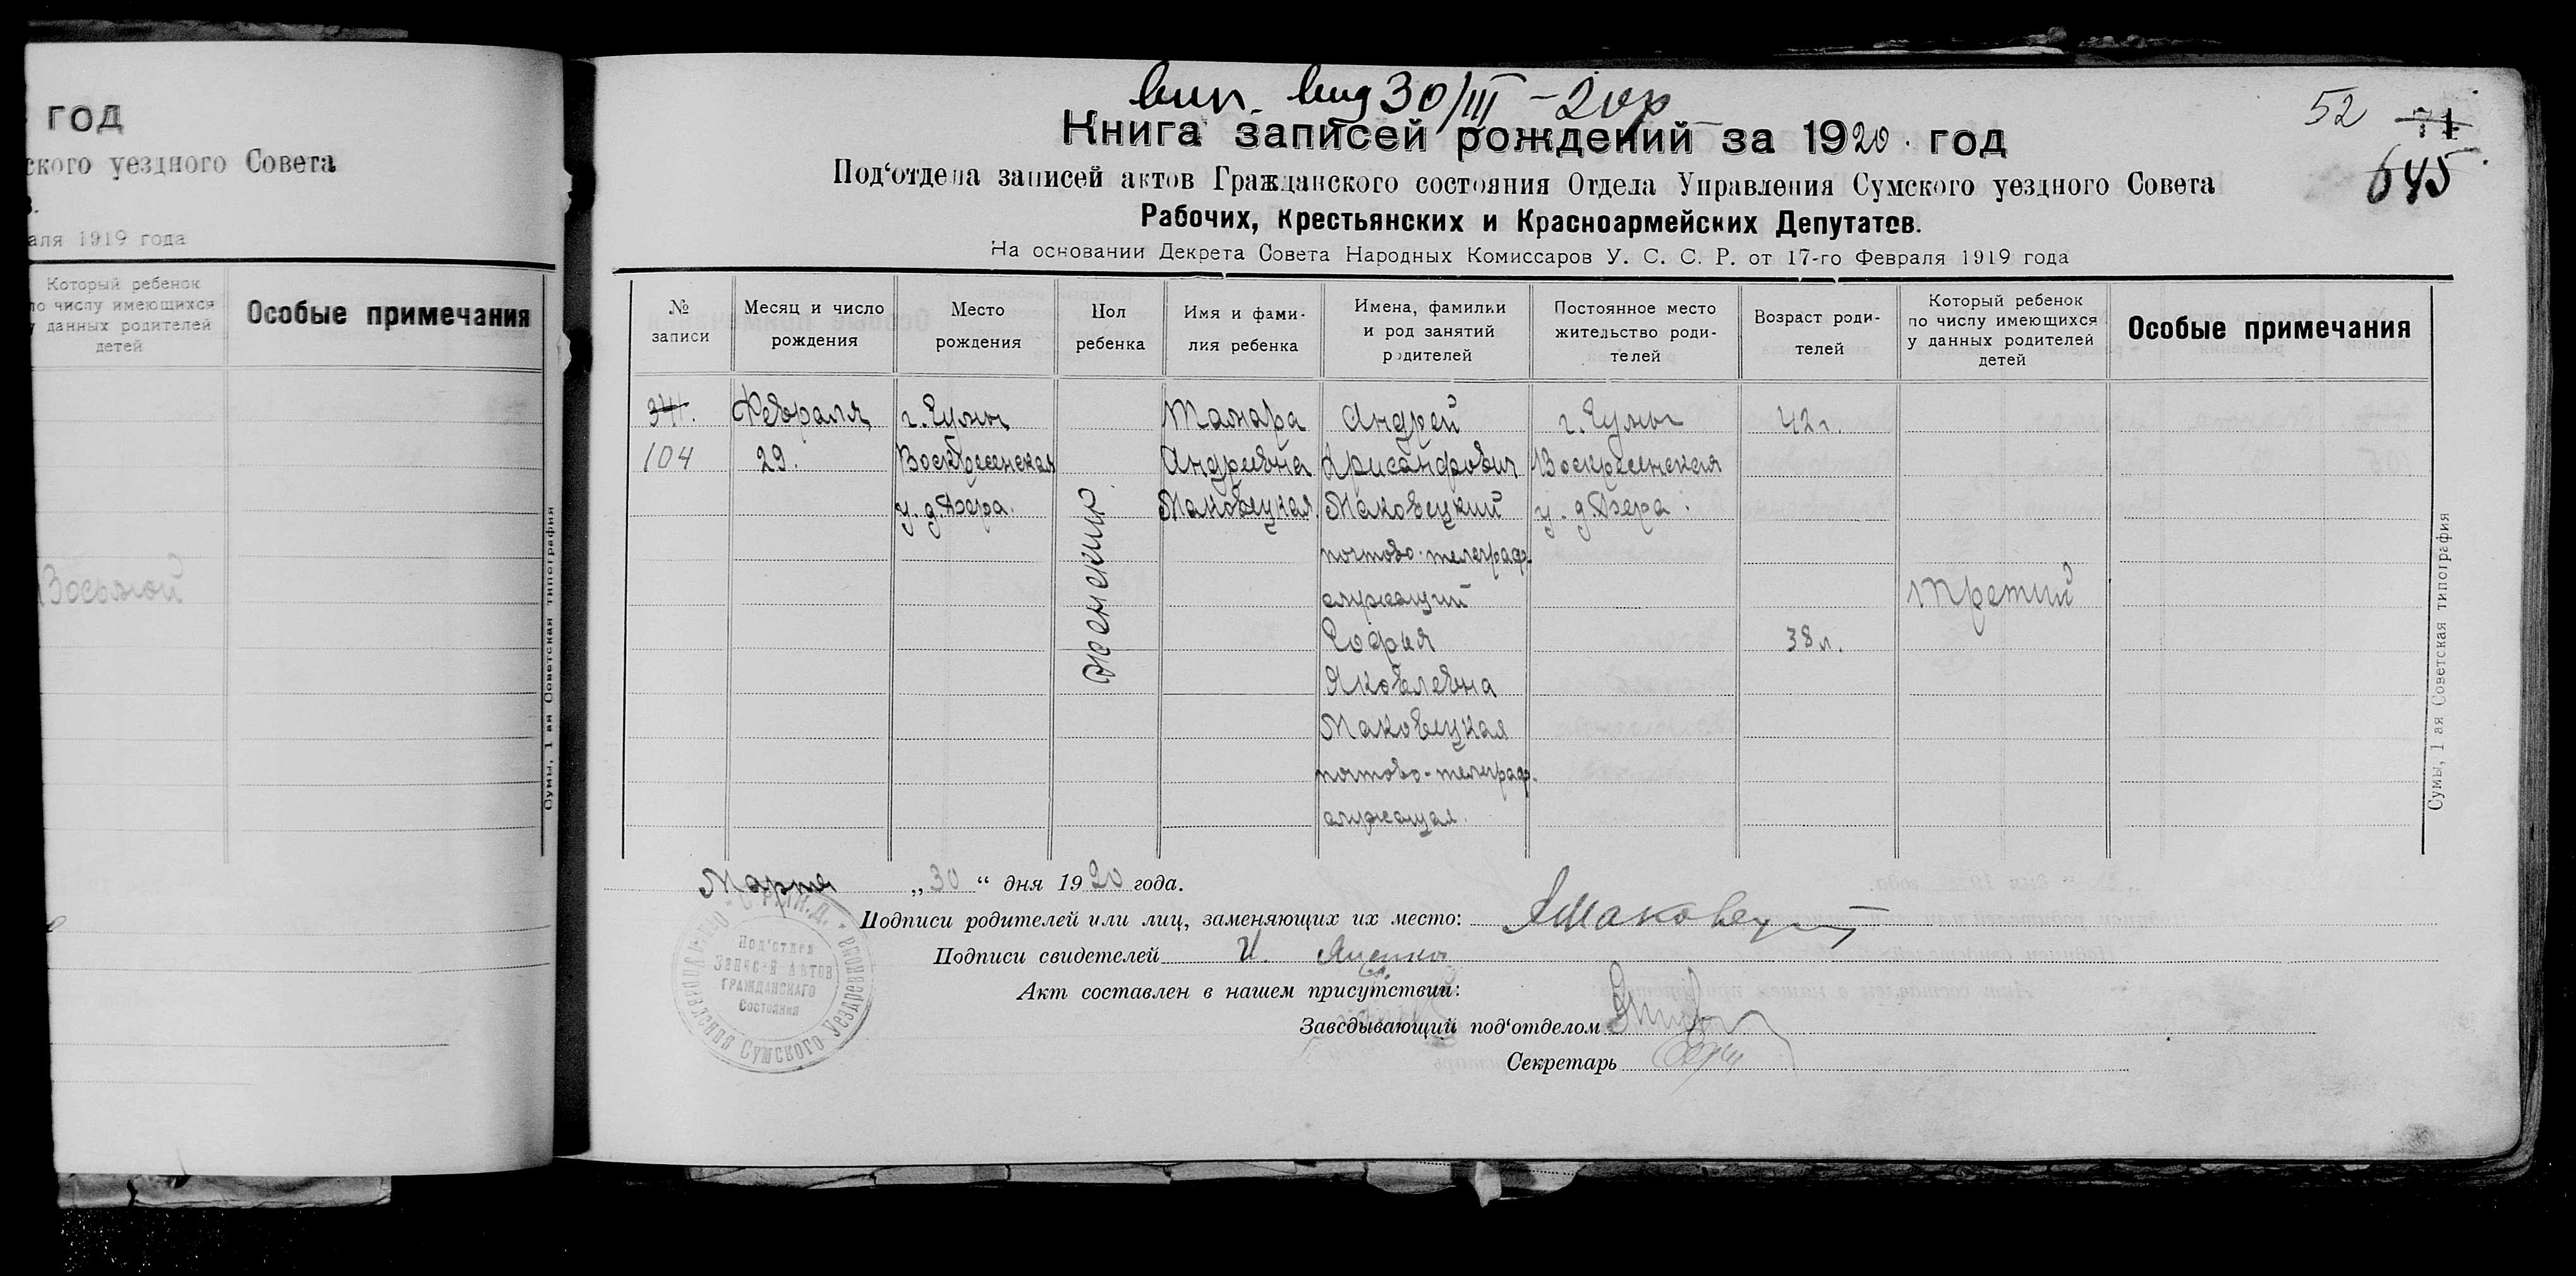 год
ского уездного Совета
аля 1919 года
Который ребенок
по числу имеющихся
у данных родителей
детей
Особые примечания
Восьмой
Сумы, 1 ая Советская типография
вип. вид 30/III – 20 р
52 71
645
Книга записей рождений за 1920. год
Под‘отдела записей актов Гражданского состояния Отдела Управления Сумского уездного Совета
Рабочих, Крестьянских и Красноармейских Депутатов.
На основании Декрета Совета Народных Комиссаров У. С. С. Р. от 17-го Февраля 1919 года
№
записи
Месяц и число
рождения
Место
рождения
Пол
ребенка
Имя и фами-
лия ребенка
Имена, фамилии
и род занятий
родителей
Постоянное место
жительство роди-
телей
Возраст роди-
телей
Который ребенок
по числу имеющихся
у данных родителей
детей
Особые примечания
341.
104
Февраля
29.
г. Сумы
Воскресенская
у. д.
женский
Тамара
Андреевна
Маковецкая
Андрей
Маковецкий
почтово-телеграф.
служащий
София
Яковлевна
Маковецкая
почтово-телеграф.
служащая.
г. Сумы
Воскресенская
у. д.
42 г.
38 л.
Третий
Сумы, 1 ая Советская типография
Марта „30“ дня 1920 года.
Подписи родителей или лиц, заменяющих их место: АМаковецкий
Подписи свидетелей И. Яценко
Акт составлен в нашем присутствии:
Заведывающий под‘отделом
Секретарь
Под‘отдел
Записей Актов
Гражданскаго
Состояния
Управления Сумского Уездревкома